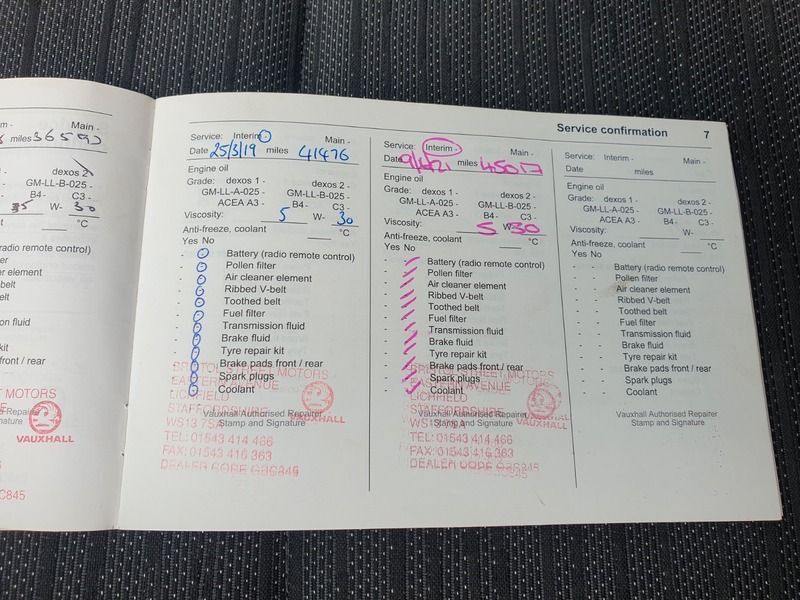 Service confirmation 7
m - Main -
miles 36590
dexos 2 -
GM-LL-B-025 -
B4- C3 -
5 W- 30
°C
radio remote control)
er
er element
elt
elt
on fluid
kit
front / rear
MOTORS
ed Repairer
nature
VAUXHALL
C845
Service: Interim - Main -
Date 25/3/19 miles 41476
Engine oil
Grade: dexos 1 - dexos 2 -
GM-LL-A-025 - GM-LL-B-025 -
ACEA A3 - B4 - C3 -
Viscosity: 5 W- 30
Anti-freeze, coolant °C
Yes No
- Battery (radio remote control)
- Pollen filter
- Air cleaner element
- Ribbed V-belt
- Toothed belt
- Fuel filter
- Transmission fluid
- Brake fluid
- Tyre repair kit
- Brake pads front / rear
- Spark plugs
- Coolant
BRISTOL STREET MOTORS
EASTERN AVENUE
LICHFIELD
STAFFORDSHIRE
WS13 7SA
TEL: 01543 414 466
FAX: 01543 416 363
DEALER CODE GBC845
VAUXHALL
Vauxhall Authorised Repairer
Stamp and Signature
Service: Interim - Main -
Date 21 miles 45017
Engine oil
Grade: dexos 1 - dexos 2 -
GM-LL-A-025 - GM-LL-B-025 -
ACEA A3 - B4 - C3 -
Viscosity: 5 W- 30
Anti-freeze, coolant °C
Yes No
- Battery (radio remote control)
- Pollen filter
- Air cleaner element
- Ribbed V-belt
- Toothed belt
- Fuel filter
- Transmission fluid
- Brake fluid
- Tyre repair kit
- Brake pads front / rear
- Spark plugs
- Coolant
BRISTOL STREET MOTORS
EASTERN AVENUE
LICHFIELD
STAFFORDSHIRE
WS13 7SA
TEL: 01543 414 466
FAX: 01543 416 363
DEALER CODE GBC845
Vauxhall Authorised Repairer
Stamp and Signature
Service: Interim - Main -
Date miles
Engine oil
Grade: dexos 1 - dexos 2 -
GM-LL-A-025 - GM-LL-B-025 -
ACEA A3 - B4 - C3 -
Viscosity: W-
Anti-freeze, coolant °C
Yes No
- - Battery (radio remote control)
- - Pollen filter
- - Air cleaner element
- - Ribbed V-belt
- - Toothed belt
- - Fuel filter
- - Transmission fluid
- - Brake fluid
- - Tyre repair kit
- - Brake pads front / rear
- - Spark plugs
- - Coolant
Vauxhall Authorised Repairer
Stamp and Signature